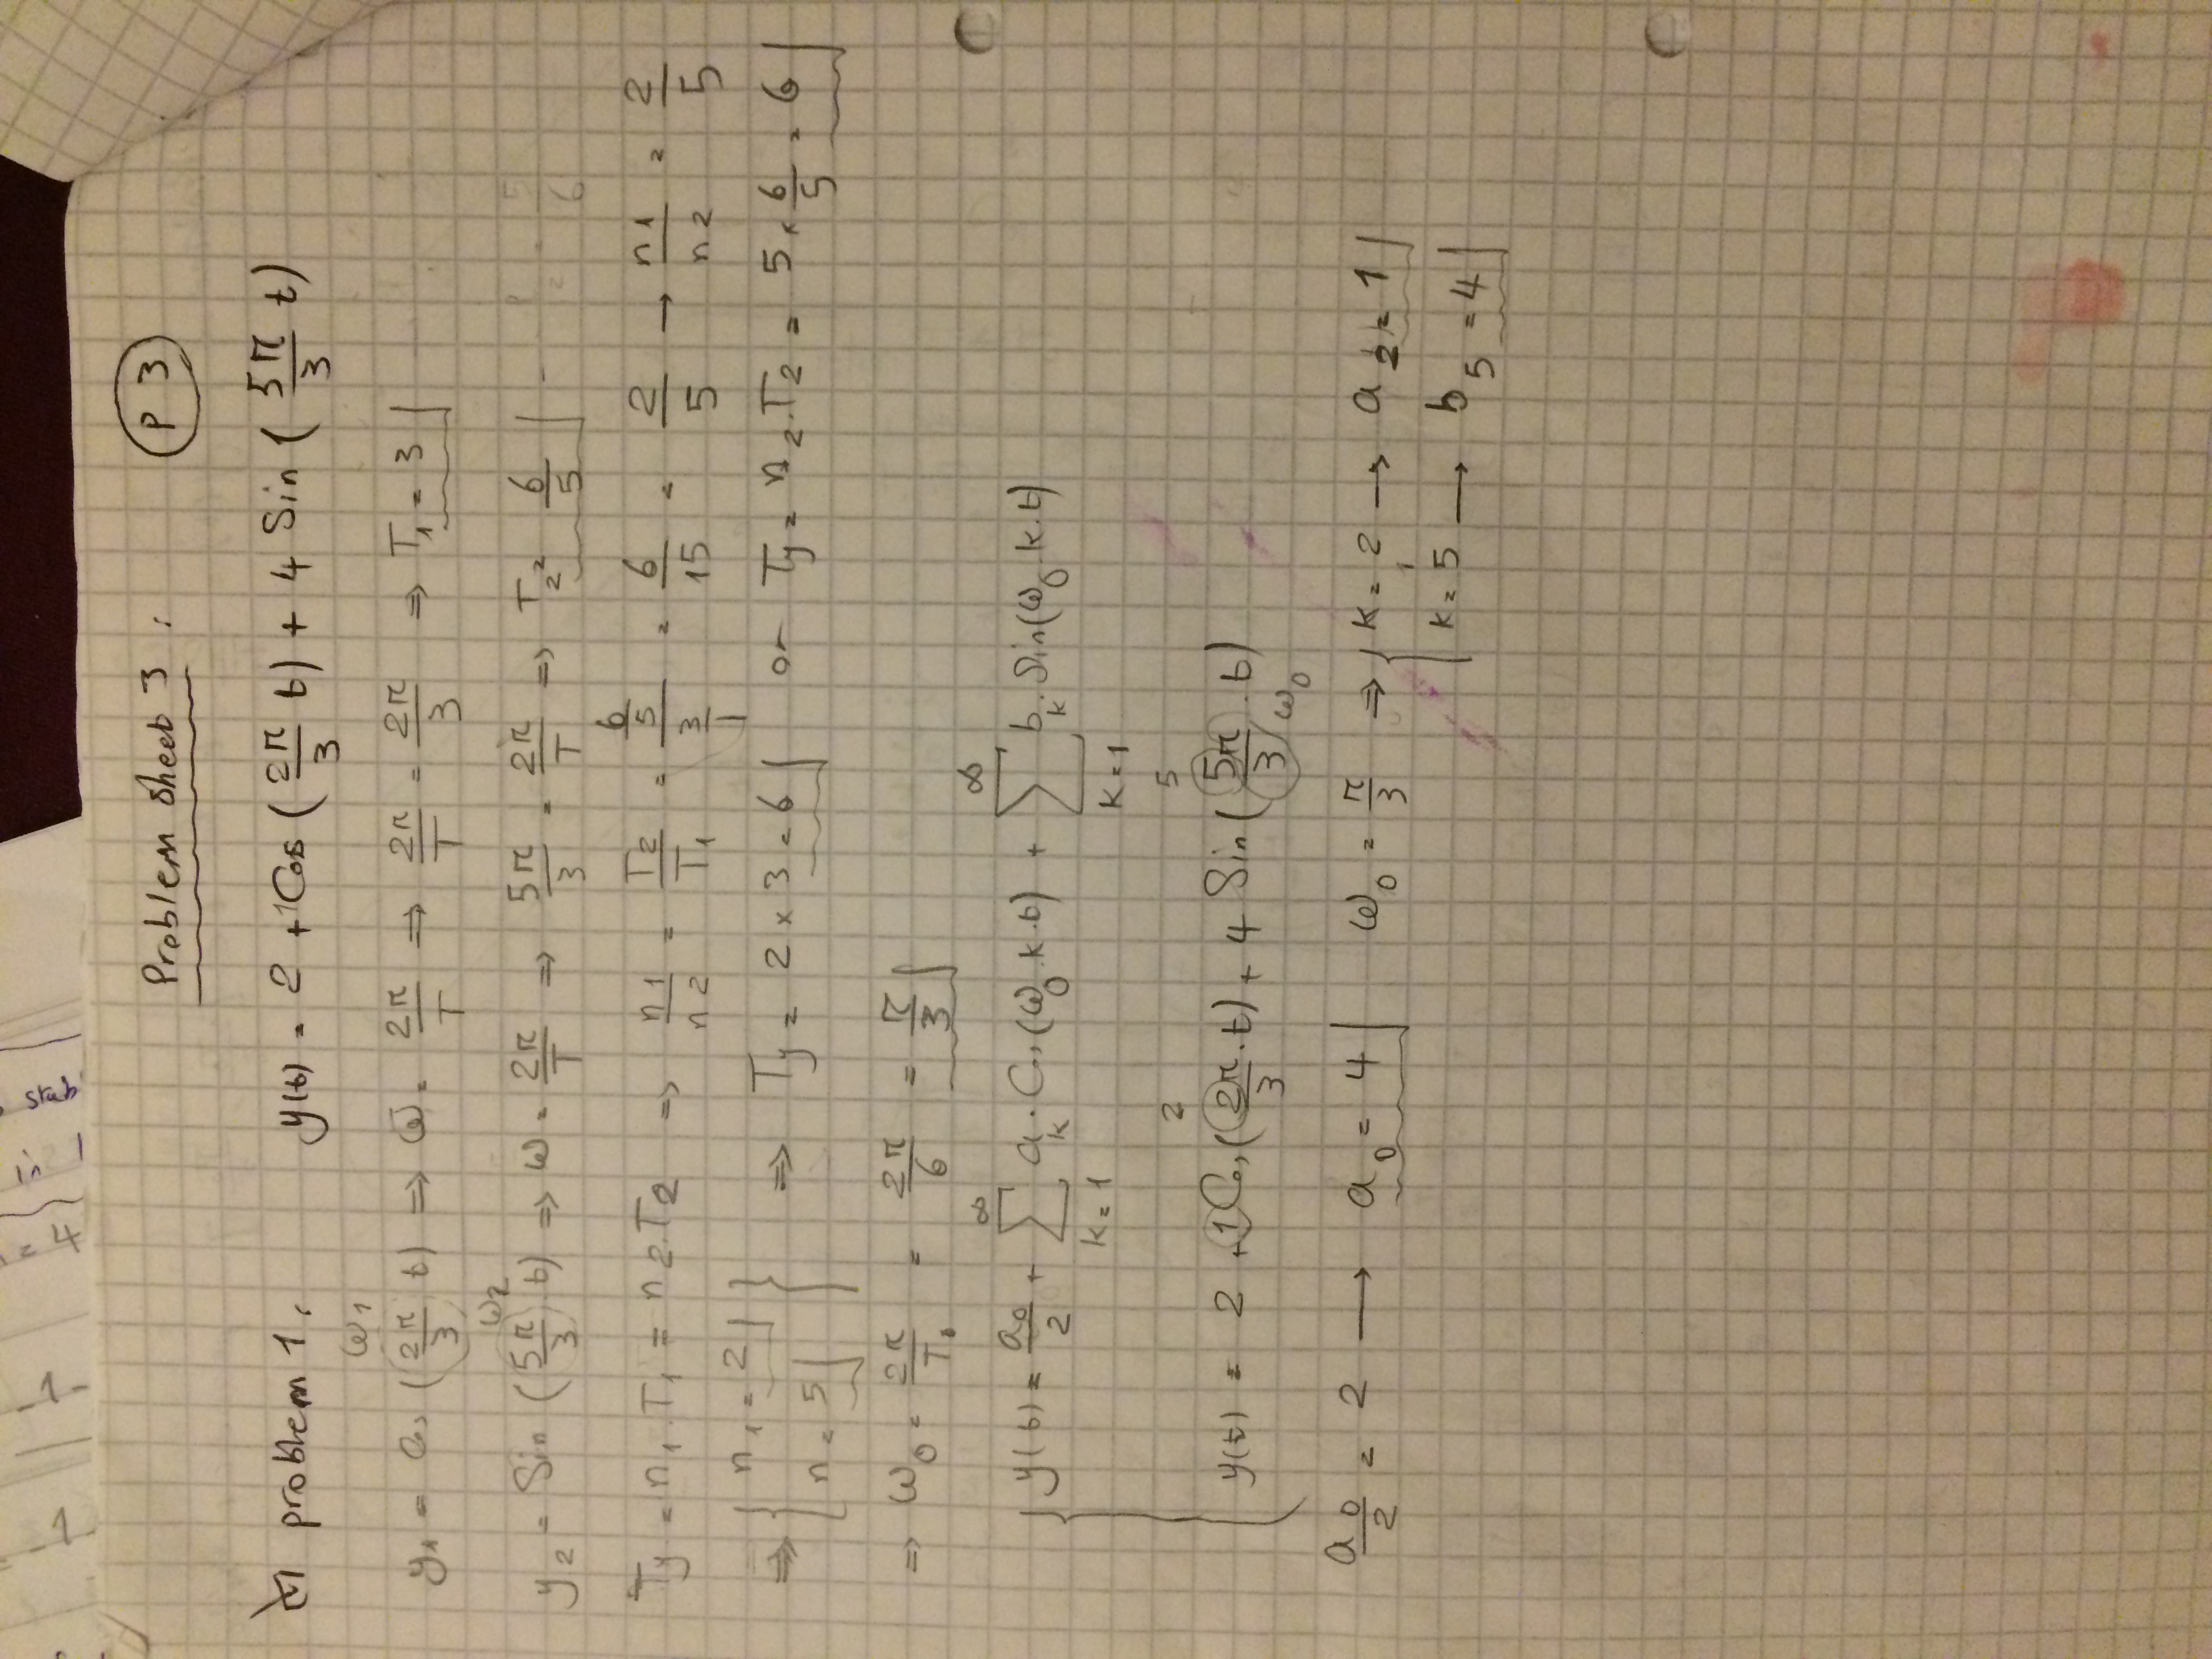 = 4
in
stab
Problem Sheet 3 : P 3
problem 1. y(t) = 2 + 1 Cos ( 2π/3 t ) + 4 Sin ( 5π/3 t )
ω1
y1 = Cos ( 2π/3 t ) ⇒ ω = 2π/T ⇒ 2π/T = 2π/3 ⇒ T1 = 3
ω2
y2 = Sin ( 5π/3 t ) ⇒ ω = 2π/T ⇒ 5π/3 = 2π/T ⇒ T2 = 6/5
Ty = n1.T1 = n2.T2 ⇒ n1/n2 = T2/T1 = (6/5)/(3/1) = 6/15 = 2/5 → n1/n2 = 2/5
⇒ { n1 = 2 } ⇒ Ty = 2 × 3 = 6 or Ty = n2.T2 = 5 × 6/5 = 6
n = 5
⇒ ω0 = 2π/T0 = 2π/6 = π/3
y(t) = a0/2 + ∑ k=1 ∞ ak . Cos(ω0.k.t) + ∑ k=1 ∞ bk . Sin(ω0.k.t)
2 5
y(t) = 2 + 1 Cos( 2π/3 . t ) + 4 Sin( 5π/3 . t )
ω0
a0/2 = 2 → a0 = 4 ω0 = π/3 ⇒ { k = 2 → a2 = 1
k = 5 → b5 = 4